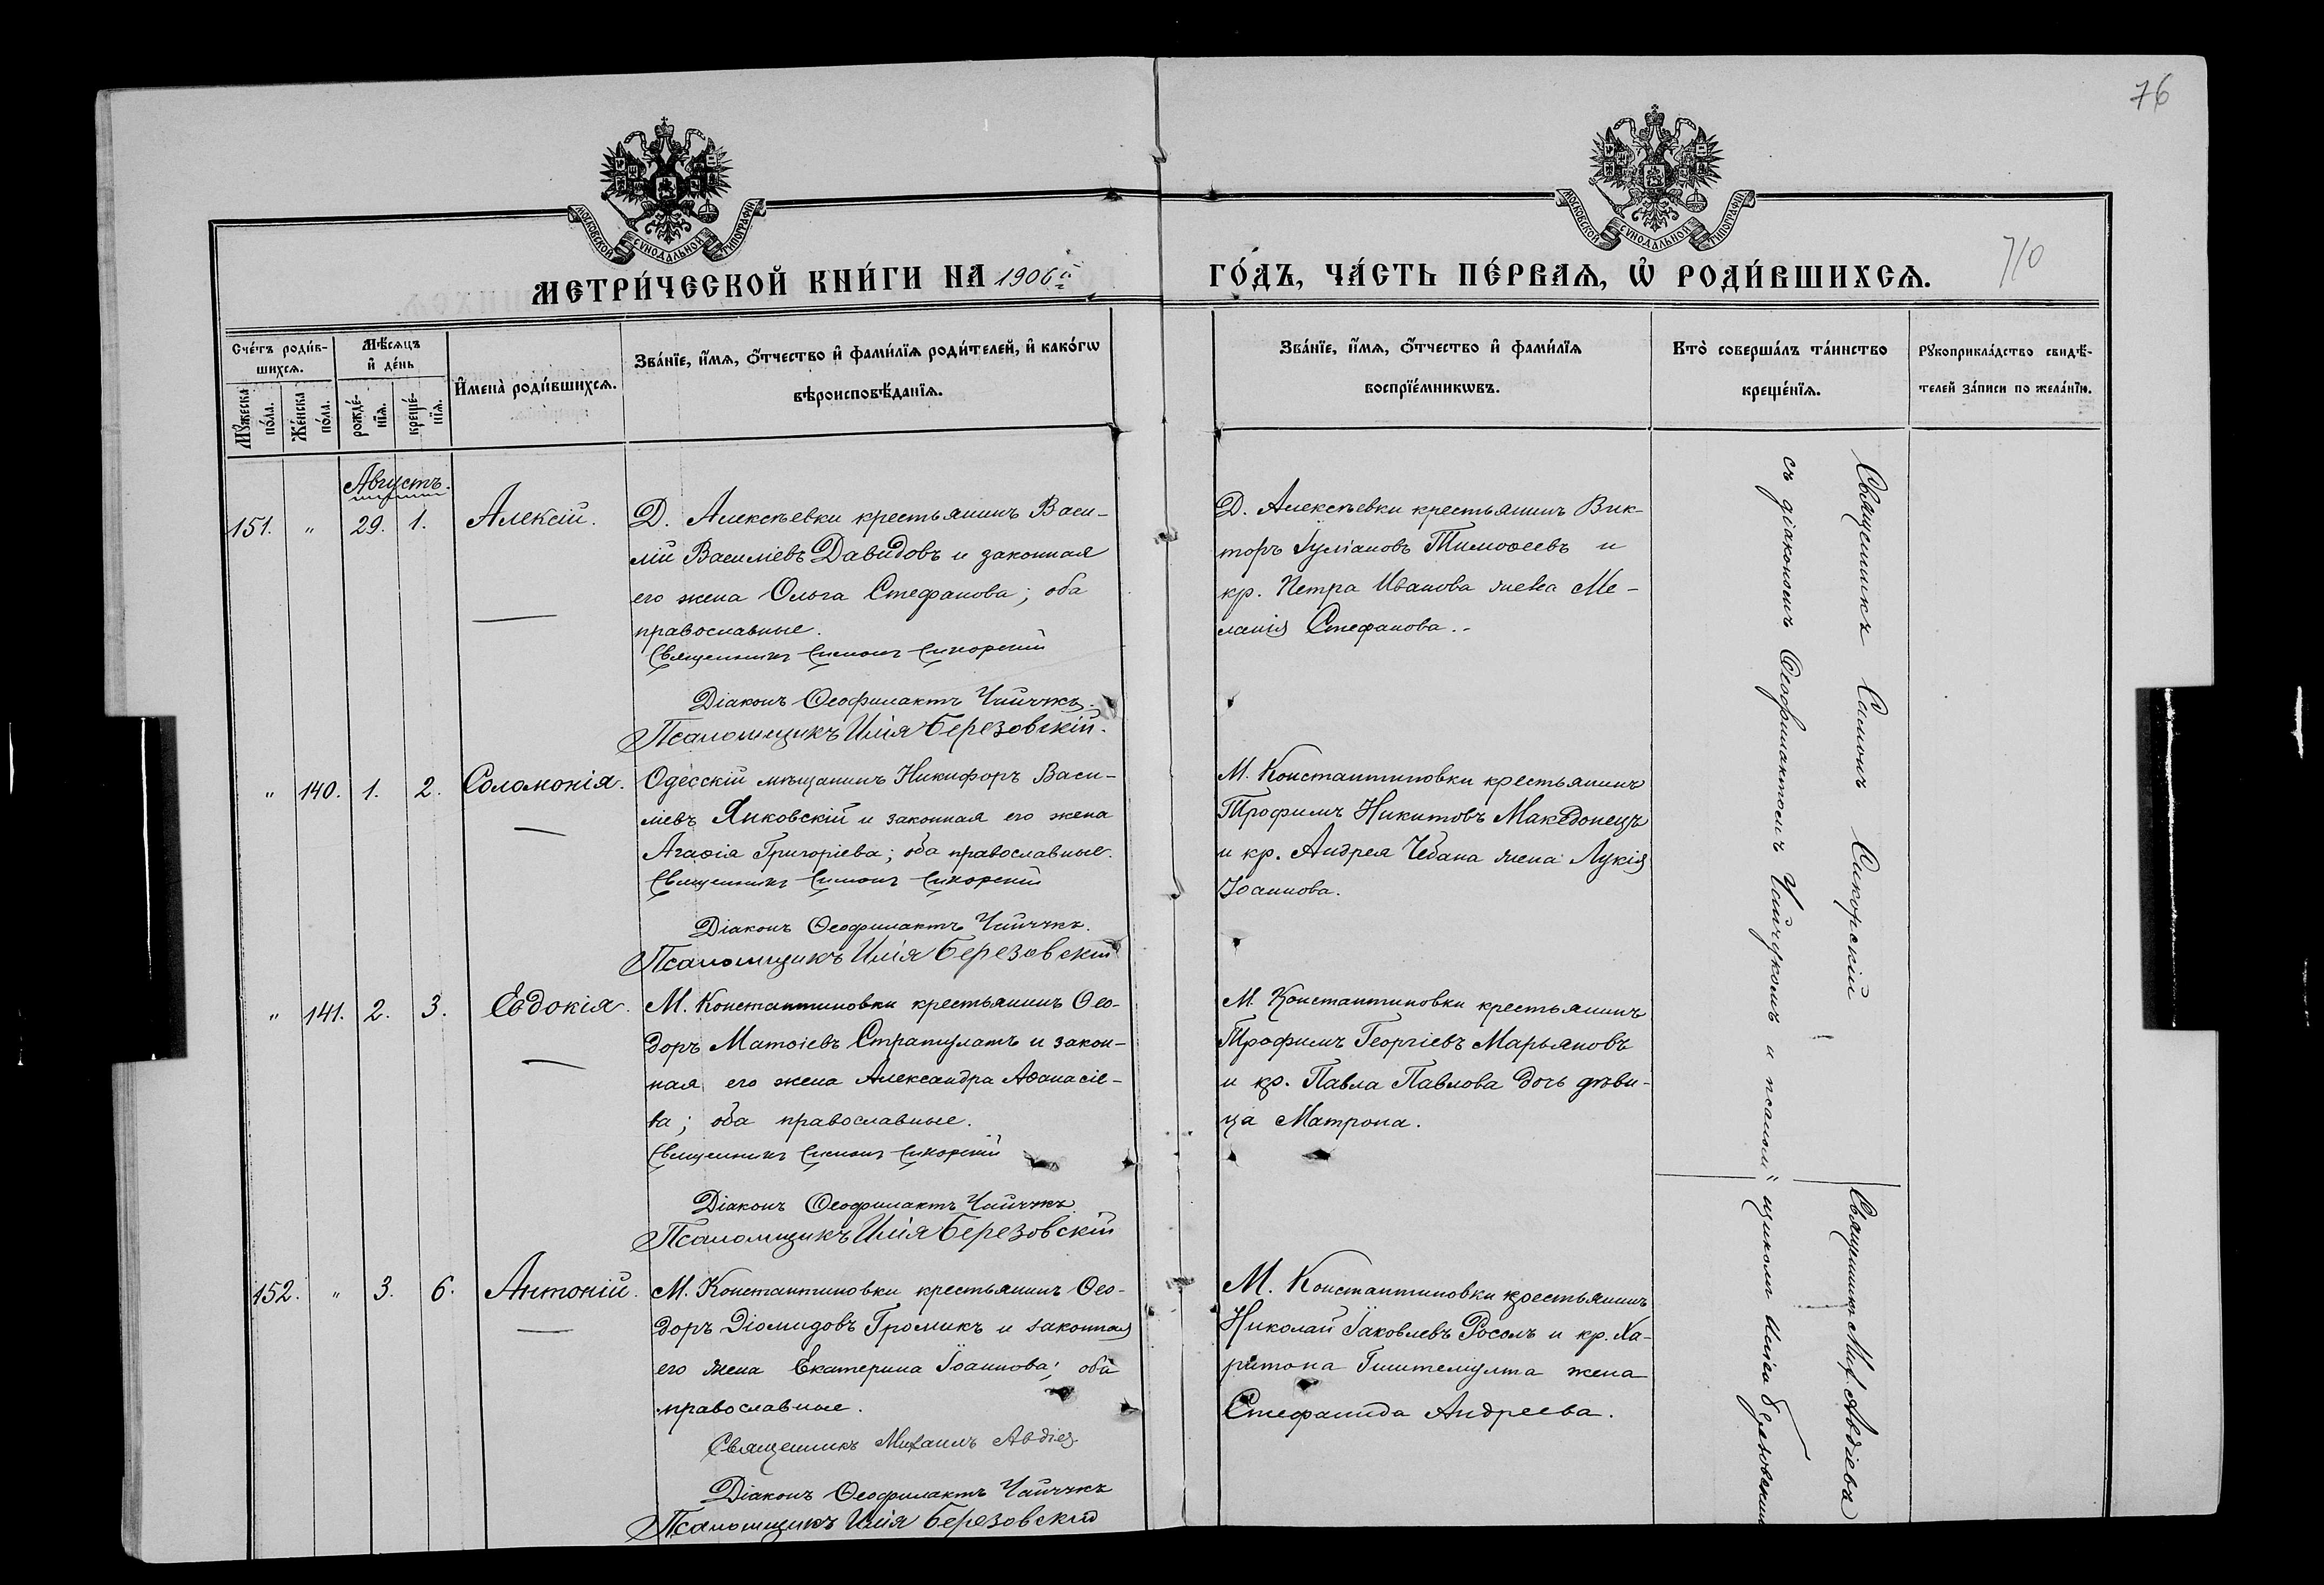 76
710
МОСКОВСКОЙ СУНОДАЛЬНОЙ ТИПОГРАФІИ
МОСКОВСКОЙ СУНОДАЛЬНОЙ ТИПОГРАФІИ
МЕТРИ́ЧЕСКОЙ КНИ́ГИ НА 1906й
ГО́ДЪ, ЧА́СТЬ ПЕ́РВАѦ, Ѽ РОДИ́ВШИХСѦ.
Сче́тъ роди́в-
шихсѧ.
Мꙋ́жеска
по́ла.
Же́нска
по́ла.
Мѣ́сѧцъ
и҆ де́нь
рожде́-
нїѧ.
креще́-
нїѧ.
И҆мена̀ роди́вшихсѧ.
Зва́нїе, и҆́мѧ, ѻ҆́тчество и҆ фами́лїѧ роди́телей, и҆ како́гѡ
вѣроисповѣ́данїѧ.
Зва́нїе, и҆́мѧ, ѻ҆́тчество и҆ фами́лїѧ
воспрїе́мникѡвъ.
Кто̀ соверша́лъ та́инство
креще́нїѧ.
Рꙋкоприкла́дство свидѣ́-
телей за́писи по жела́нїю.
Августъ.
151. " 29. 1. Алексій.
Д. Алексѣевки крестьянинъ Васи-
лій Василіевъ Давидовъ и законная
его жена Ольга Стефанова; оба
православные.
Священникъ Симонъ Сикорскій
Діаконъ Ѳеофилактъ Чайчукъ.
Псаломщикъ Илія Березовскій.
Д. Алексѣевки крестьянинъ Вик-
торъ Іуліановъ Тимоѳеевъ и
кр. Петра Иванова жена Ме-
ланія Стефанова.-
" 140. 1. 2. Соломонія.
Одесскій мѣщанинъ Никифоръ Васи-
лiевъ Янковскій и законная его жена
Агаѳія Григоріева; оба православные.
Священникъ Симонъ Сикорскій
Діаконъ Ѳеофилактъ Чайчукъ.
Псаломщикъ Илія Березовскій
М. Константиновки крестьянинъ
Трофимъ Никитовъ Македонецъ
и кр. Андрея Чебана жена Лукія
Іоаннова.
" 141. 2. 3. Евдокія.
М. Константиновки крестьянинъ Ѳео-
доръ Матѳіевъ Стратулатъ и закон-
ная его жена Александра Аѳанасіе-
ва; оба православные.
Священникъ Симонъ Сикорскій
Діаконъ Ѳеофилактъ Чайчукъ
Псаломщикъ Илія Березовскій
М. Константиновки крестьянинъ
Трофимъ Георгіевъ Марьяновъ
и кр. Павла Павлова дочь дѣви-
ца Матрона.
152. " 3. 6. Антоній.
М. Константиновки крестьянинъ Ѳео-
доръ Діомидовъ Громикъ и законная
его жена Екатерина Іоаннова; оба
православные.
Священникъ Михаилъ Авдіев
Діаконъ Ѳеофилактъ Чайчукъ
Псаломщикъ Илія Березовскій
М. Константиновки крестьянинъ
Николай Іаковлевъ Росолъ и кр. Ха-
ритона жена
Стефанида Андреева.
Священникъ Симонъ Сикорскій
Священникъ Мих. Авдіевъ
съ діакономъ Ѳеофилактомъ Чайчукомъ и псалом" щикомъ Иліею Березовскимъ